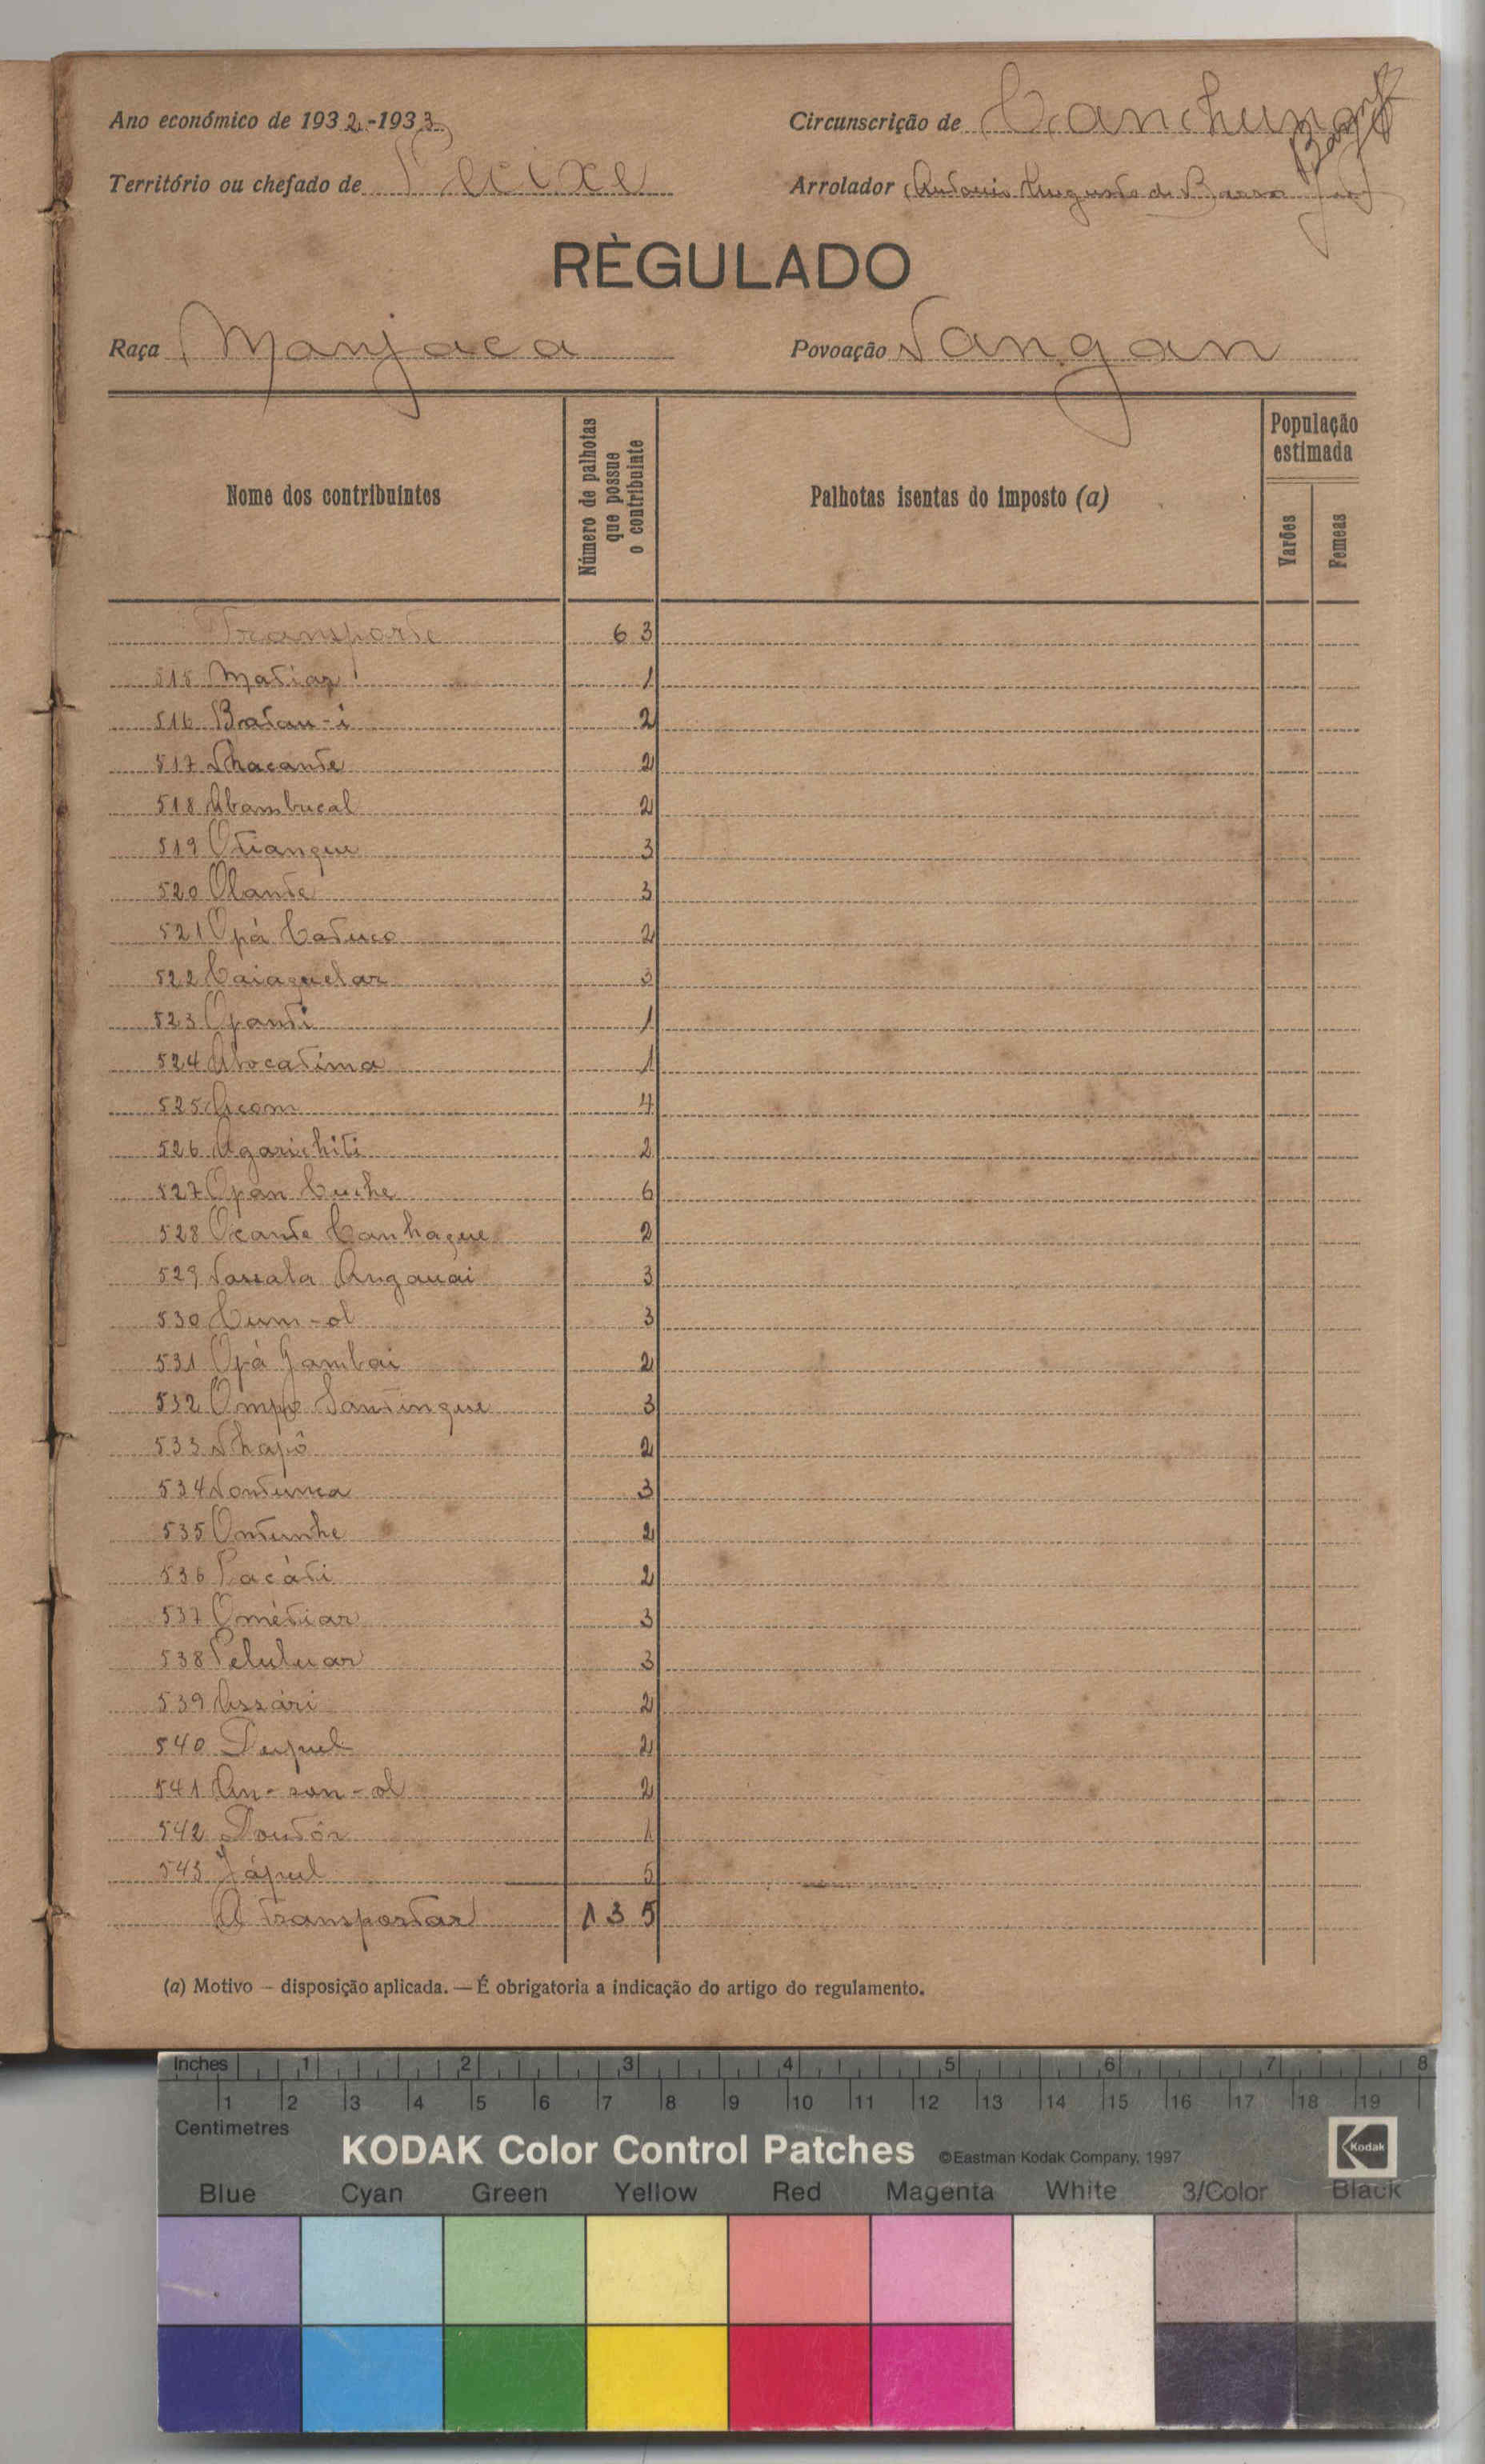 Ano económico de 1932-1933
Circunscrição de Canchungo
Território ou chefado de Pecixe
Arrolador Antonio Augusto de Barros
RÈGULADO
Raça Manjaca
Povoação Nangan
Nome dos contribuintes
Número de palhotas que possue o contribuinte
Palhotas isentas do imposto (a)
População estimada
Varões
Femeas
Transporte 63
515 Matiar 1
516 Batau-i 2
517 Nhacante 2
518 Abambucal 2
519 Otiangue 3
520 Olante 3
521 Opá Catuco 2
522 Caiaguelar 3
523 Opanti 1
524 Atocatima 1
525 Acom 4
526 Agarichiti 2
527 Opan Cuche 6
528 Ocante Canhague 2
529 Angauái 3
530 Cum-ol 3
531 Opá Gambai 2
532 Ompo 3
533 Nhapô 2
534 Nontunca 3
535 Ontunhe 2
536 Pacáti 2
537 Ométiar 3
538 Peluluar 3
539 Assári 2
540 2
541 An-san-ol 2
542 Doutór 1
543 Jápul 5
A transportar 135
(a) Motivo — disposição aplicada. — É obrigatoria a indicação do artigo do regulamento.
Inches 1 2 3 4 5 6 7 8
1 2 3 4 5 6 7 8 9 10 11 12 13 14 15 16 17 18 19
Centimetres
KODAK Color Control Patches ©Eastman Kodak Company, 1997 Kodak
Blue Cyan Green Yellow Red Magenta White 3/Color Black